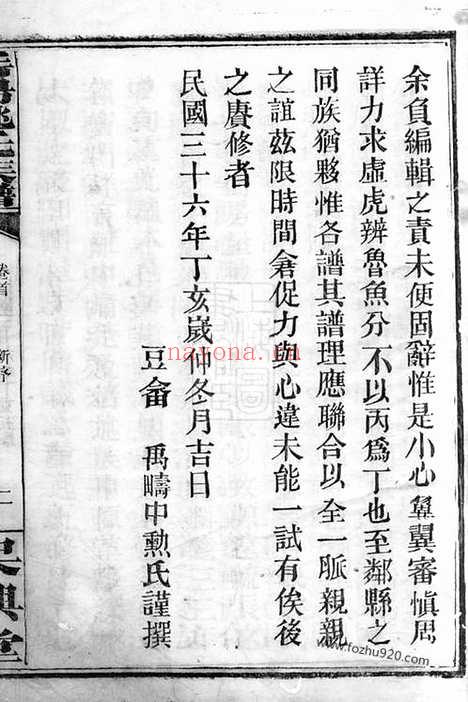 余負編輯之責未便固辭惟是小心翼翼審愼周
詳力求虛虎辨魯魚分不以丙爲丁也至鄰縣之
同族猶夥惟各譜其譜理應聯合以全一脈親親
之誼茲限時間倉促力與心違未能一試有俟後
之賡修者
民國三十六年丁亥歲仲冬月吉日
豆畬 禹疇中勳氏謹撰
氏族譜
卷首 新序
二
吳興堂
nayona.cn
www.fozhu920.com